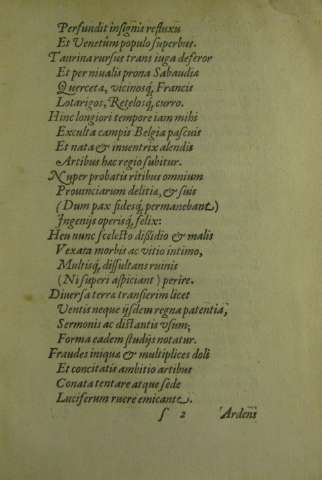 Perfundit insignis refluxu
Et Venetûm populo superbus.
Taurina rursus trans iuga deferor
Et per niualis prona Sabaudia
Querceta, vicinosq́, Francis
Lotarigos, Retelosq́, curro.
Hinc longiori tempore iam mihi
Exculta campis Belgia pascuis
Et nata & inuentrix alendis
Artibus hac regio subitur.
Nuper probatis ritibus omnium
Prouinciarum delitia, & suis
(Dum pax fidesq́, permanebant)
Ingenijs operisq́, felix:
Heu nunc scelesto dissidio & malis
Vexata morbis ac vitio intimo,
Multisq́, dissultans ruinis
(Ni superi aspiciant) perire.
Diuersa terra transierim licet
Ventis neque ijsdem regna patentia,
Sermonis ac distantis vsum;
Forma eadem studijs notatur.
Fraudes iniqua & multiplices doli
Et concitatis ambitio artibus
Conata tentare atque sede
Luciferum ruere emicante.
ſ 2 Ardens